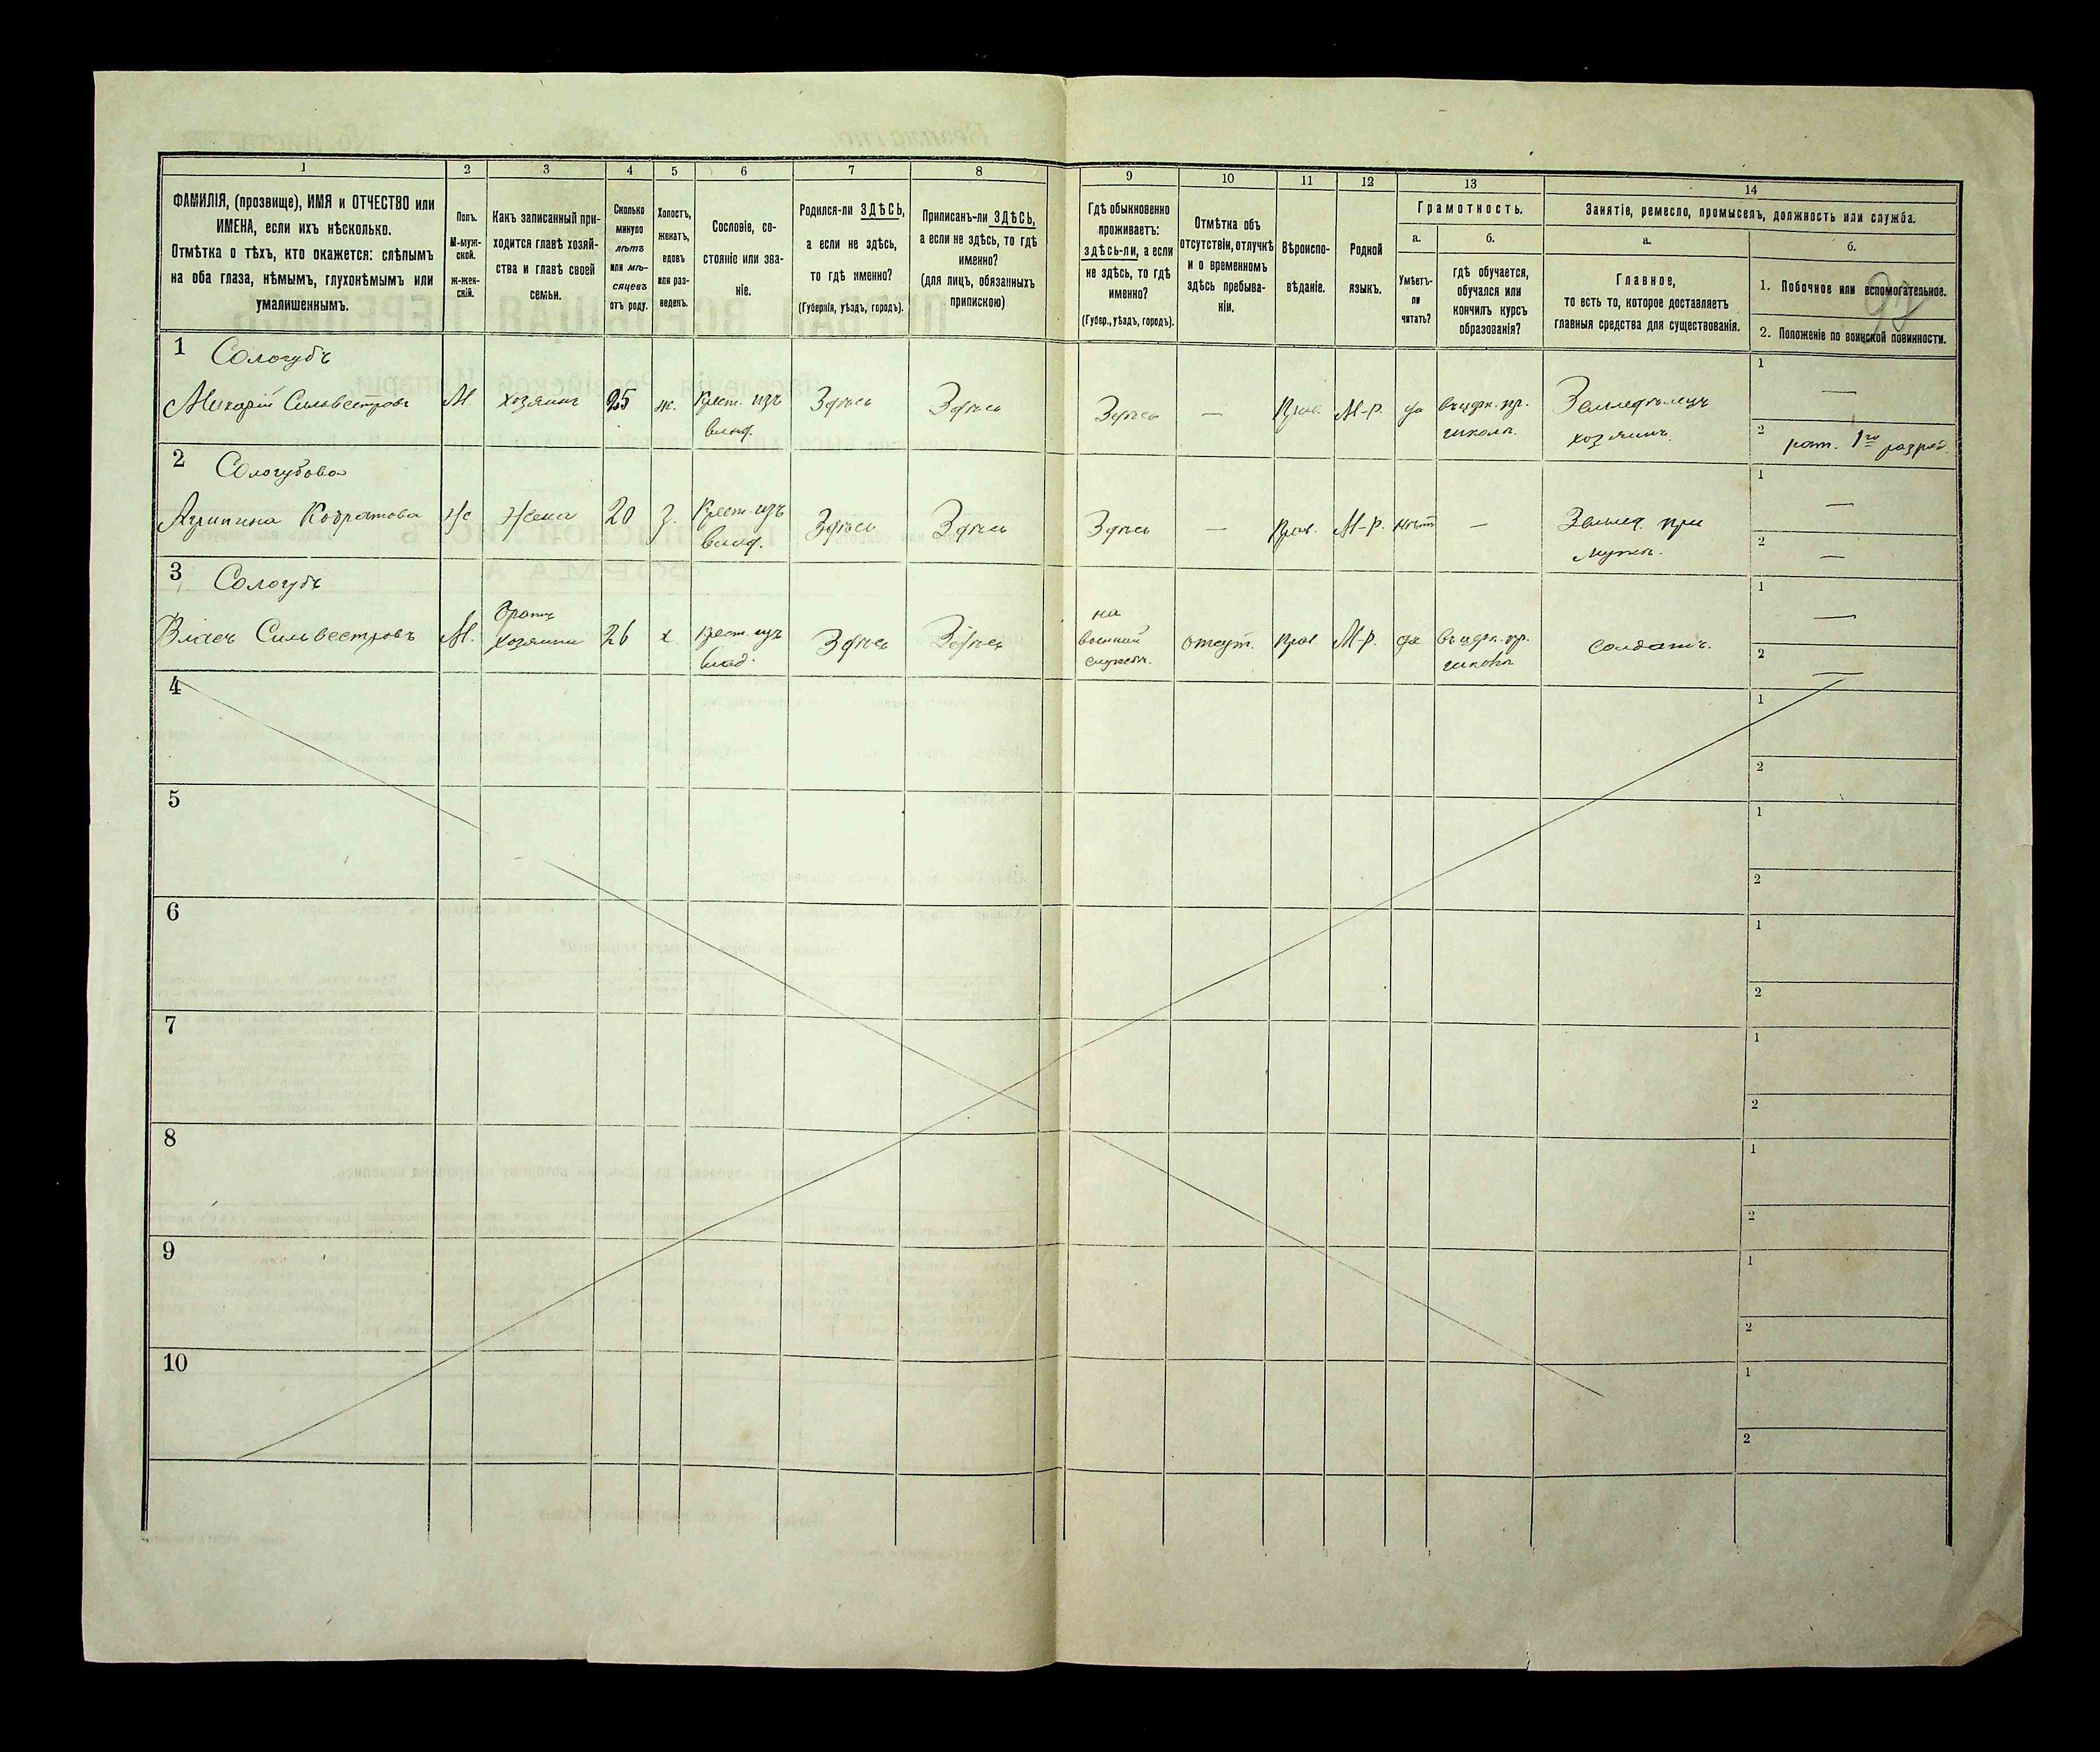 1 2 3 4 5 6 7 8 9 10 11 12 13 14
ФАМИЛІЯ, (прозвище), ИМЯ и ОТЧЕСТВО или
ИМЕНА, если ихъ нѣсколько.
Отмѣтка о тѣхъ, кто окажется: слѣпымъ
на оба глаза, нѣмымъ, глухонѣмымъ или
умалишеннымъ.
Полъ.
М-муж-
ской.
ж-жен-
скій.
Какъ записанный при-
ходится главѣ хозяй-
ства и главѣ своей
семьи.
Сколько
минуло
лѣтъ
или мѣ-
сяцевъ
отъ роду.
Холостъ,
женатъ,
вдовъ
или раз-
веденъ.
Сословіе, со-
стояніе или зва-
ніе.
Родился-ли ЗДѢСЬ,
а если не здѣсь,
то гдѣ именно?
(Губернія, уѣздъ, городъ).
Приписанъ-ли ЗДѢСЬ,
а если не здѣсь, то гдѣ
именно?
(для лицъ, обязанныхъ
припискою)
Гдѣ обыкновенно
проживаетъ:
здѣсь-ли, а если
не здѣсь, то гдѣ
именно?
(Губер., уѣздъ, городъ).
Отмѣтка объ
отсутствіи, отлучкѣ
и о временномъ
здѣсь пребыва-
ніи.
Вѣроиспо-
вѣданіе.
Родной
языкъ.
Грамотность.
а.
Умѣетъ-
ли
читать?
б.
гдѣ обучается,
обучался или
кончилъ курсъ
образованія?
Занятіе, ремесло, промыселъ, должность или служба.
а.
Главное,
то есть то, которое доставляетъ
главныя средства для существованія.
б.
1. Побочное или вспомогательное.
2. Положеніе по воинской повинности.
1 Сологубъ
Макарій Сильвестровъ М. хозяинъ 25 ж. Крест. изъ Здѣсь Здѣсь Здѣсь — Прав. М-р. да въ црк. пр. Земледѣлецъ
влад. школѣ. хозяинъ.
1 —
2 рат. 1го разряд.
2 Сологубова
Агрипина Кодратова Ж Жена 20 з. Крест. изъ Здѣсь Здѣсь Здѣсь — Прав. М-р. нѣтъ — Землед. при
влад. мужѣ.
1 —
2 —
3 Сологубъ
Власъ Сильвестровъ М. братъ
хозяина 26 х. Крест. изъ Здѣсь Здѣсь на
влад. военной
службѣ. отсут. Прав М-р. да въ црк. пр.
школѣ солдатъ.
1 —
2 —
4
1
2
5
1
2
6
1
2
7
1
2
8
1
2
9
1
2
10
1
2